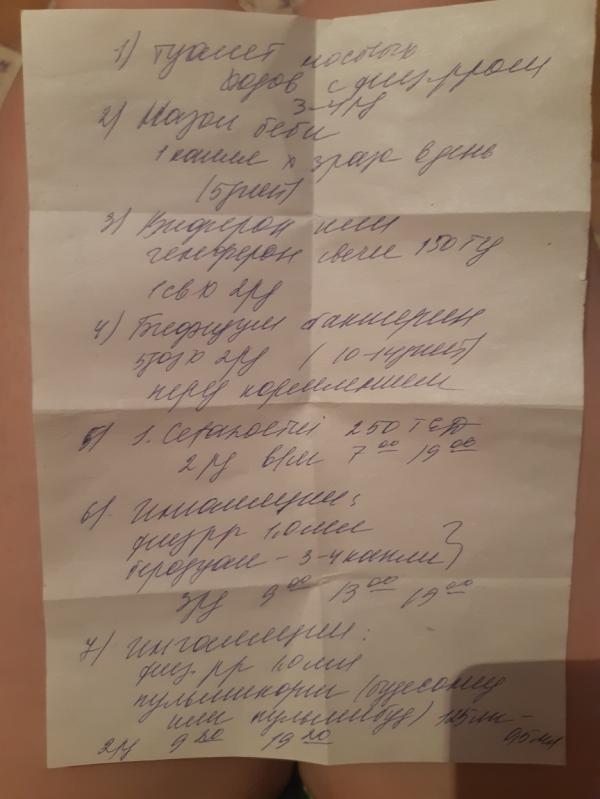 1) Туалет носовых
ходов с физ.рром
3-4 рд
2) Назол беби
1 капле х 3 раза в день
(5 дней)
3) Виферон или
генферон свечи 150 т
1 св х 2 рд
4) Бифидум бактерин
5 доз х 2 рд (10-14 дней)
перед кормлением
5) 1. 250 т ЕД
2 рд в/м 7 00 19 00
6) Ингаляции:
физ рр 1.0 мл
беродуал - 3-4 капли }
3 рд 9 00 13 00 19 00
7) Ингаляции:
физ. рр 1.0 мл
пульмикорт (будесонид
или пульмибуд) 125 -
2 рд 9 20 19 20 0,5 мл